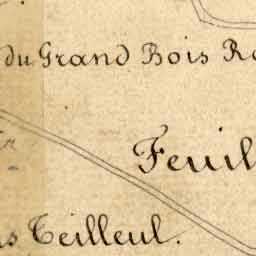 du Grand Bois R
Feuil
s Teilleul.